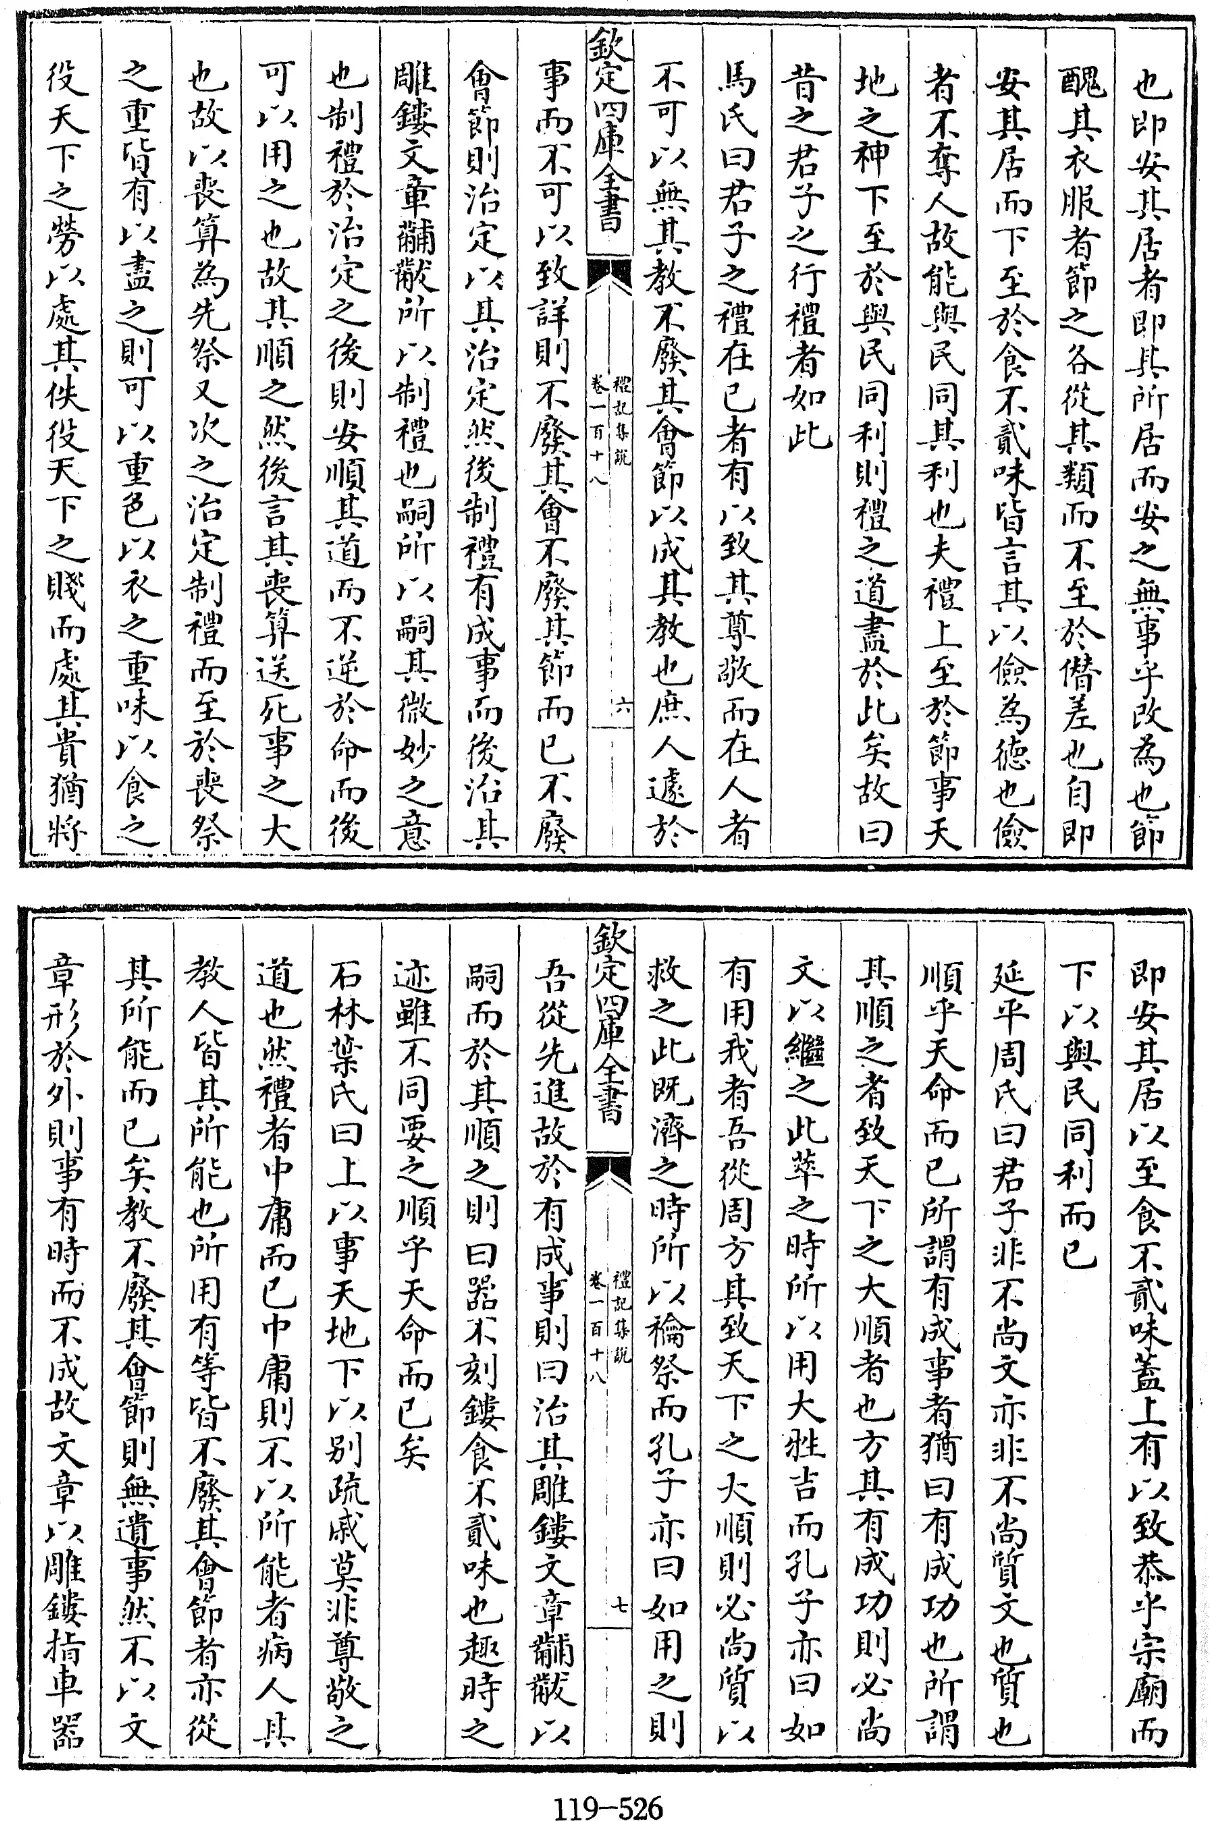 也即安其居者即其所居而安之無事乎改為也節
醜其衣服者節之各從其類而不至於僭差也自即
安其居而下至於食不貳味皆言其以儉為德也儉
者不奪人故能與民同其利也夫禮上至於節事天
地之神下至於與民同利則禮之道盡於此矣故曰
昔之君子之行禮者如此
馬氏曰君子之禮在已者有以致其尊敬而在人者
不可以無其教不廢其會節以成其教也庶人遽於
欽定四庫全書
禮記集說
卷一百十八
六
事而不可以致詳則不廢其會不廢其節而已不廢
會節則治定以其治定然後制禮有成事而後治其
雕鏤文章黼黻所以制禮也嗣所以嗣其微妙之意
也制禮於治定之後則安順其道而不逆於命而後
可以用之也故其順之然後言其喪算送死事之大
也故以喪算為先祭又次之治定制禮而至於喪祭
之重皆有以盡之則可以重色以衣之重味以食之
役天下之勞以處其佚役天下之賤而處其貴猶將
即安其居以至食不貳味蓋上有以致恭乎宗廟而
下以與民同利而已
延平周氏曰君子非不尚文亦非不尚質文也質也
順乎天命而已所謂有成事者猶曰有成功也所謂
其順之者致天下之大順者也方其有成功則必尚
文以繼之此萃之時所以用大牲吉而孔子亦曰如
有用我者吾從周方其致天下之大順則必尚質以
救之此既濟之時所以禴祭而孔子亦曰如用之則
欽定四庫全書
禮記集說
卷一百十八
七
吾從先進故於有成事則曰治其雕鏤文章黼黻以
嗣而於其順之則曰器不刻鏤食不貳味也趣時之
迹雖不同要之順乎天命而已矣
石林葉氏曰上以事天地下以别疏戚莫非尊敬之
道也然禮者中庸而已中庸則不以所能者病人其
教人皆其所能也所用有等皆不廢其會節者亦從
其所能而已矣教不廢其會節則無遺事然不以文
章形於外則事有時而不成故文章以雕鏤指車器
119-526